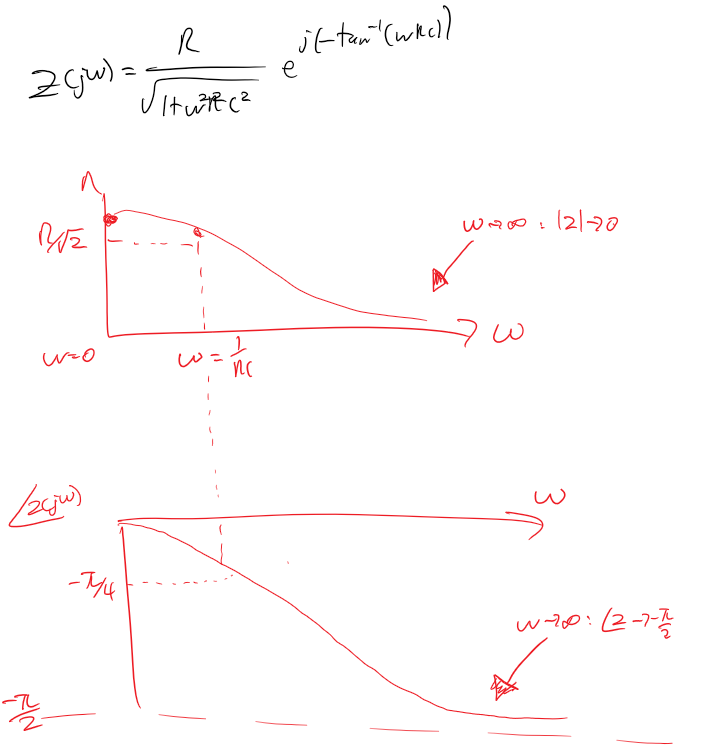 Z(jω) = R / √(1+ω²R²C²) e^j(-tan⁻¹(ωRC))
R
R/√2
ω→∞ : |Z|→0
ω
ω=0
ω = 1/RC
∠Z(jω)
ω
-π/4
ω→∞ : ∠Z→-π/2
-π/2